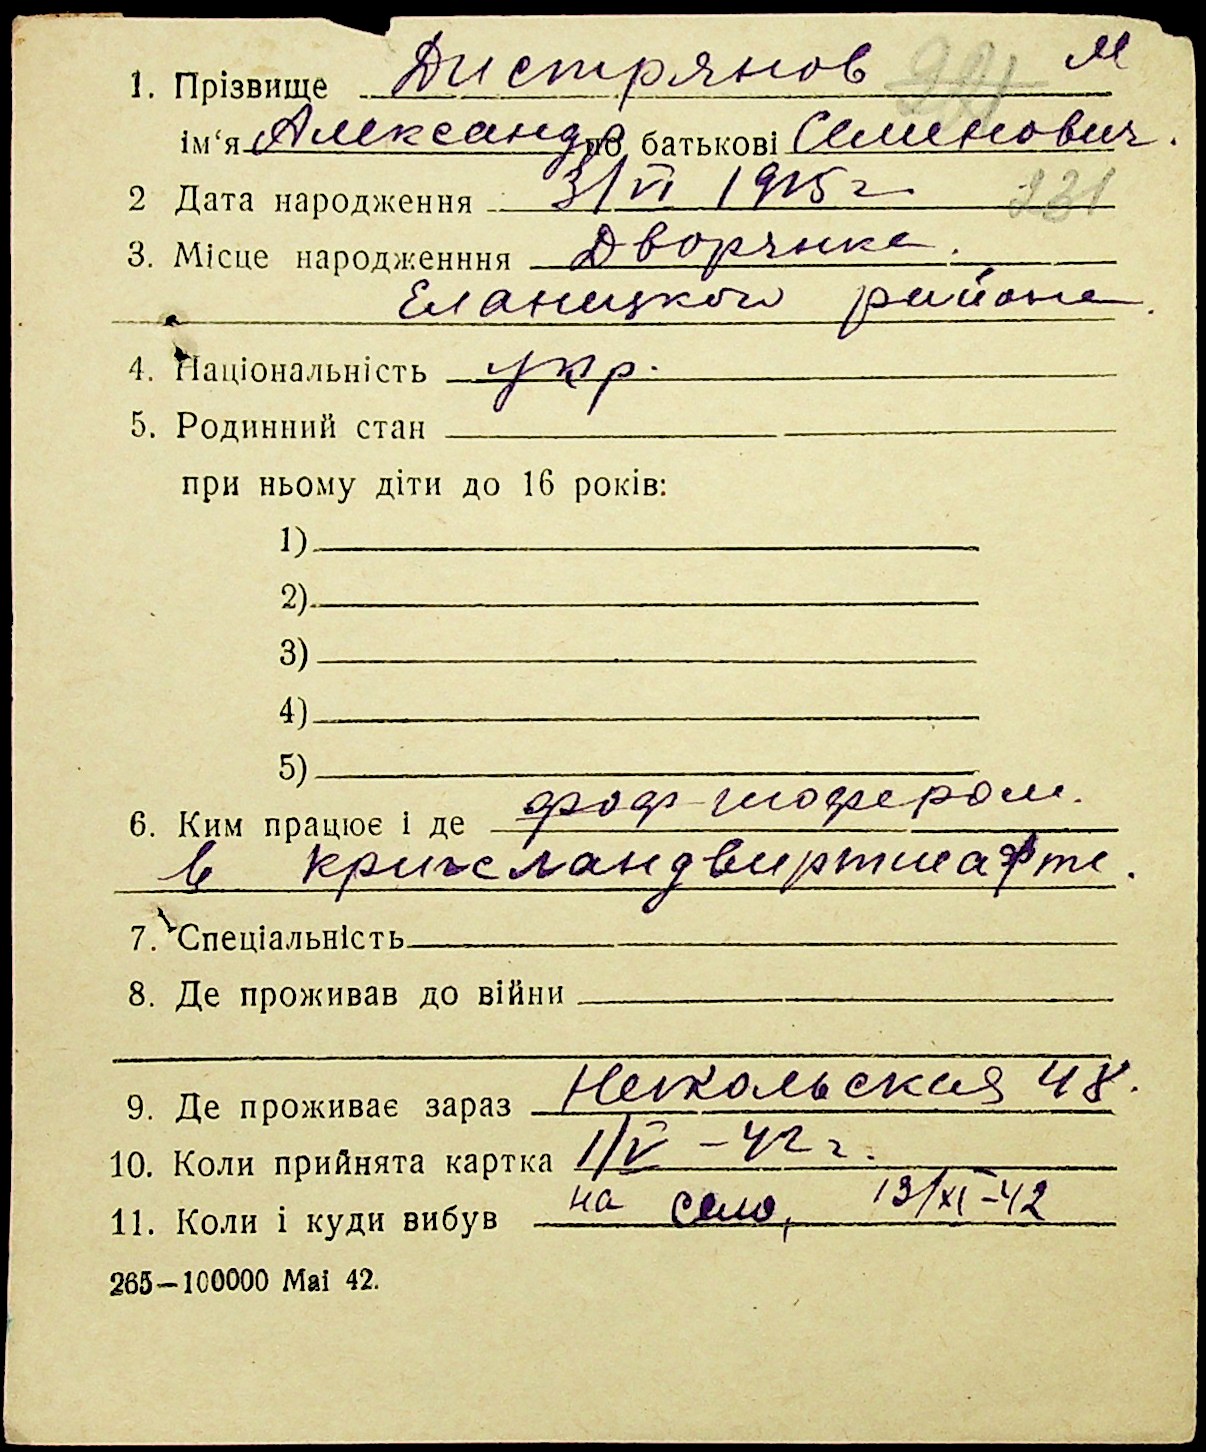 1. Прізвище Дистрянов М
ім‘я Александр по батькові Семенович.
2 Дата народження 3/VI 1915 г 231
3. Місце народженння Дворянка.
Еланецкого района.
4. Національність укр.
5. Родинний стан
при ньому діти до 16 років:
1)
2)
3)
4)
5)
6. Ким працює і де шофером.
в крисландвиртшафте.
7. Спеціальність
8. Де проживав до війни
9. Де проживає зараз Никольская 48.
10. Коли прийнята картка 1/V – 42 г.
11. Коли і куди вибув на село, 13/XI–42
265—100000 Mai 42.